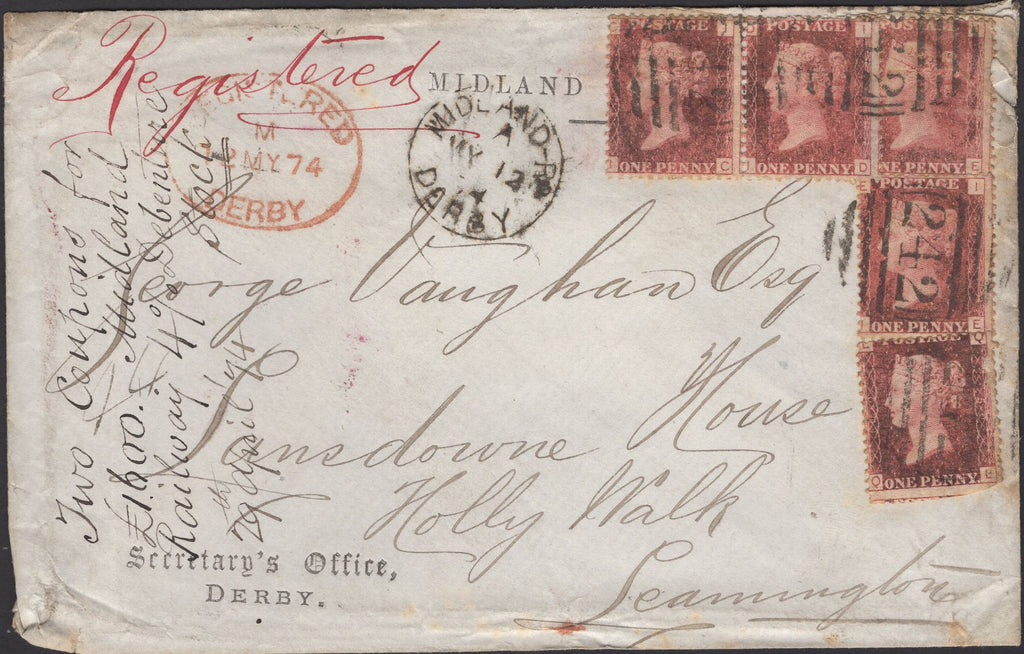 Registered
MIDLAND
REGISTERED
M
12 MY 74
DERBY
MIDLAND-R
A
MY 12
DERBY
POSTAGE
J C
ONE PENNY
POSTAGE
I
J D
ONE PENNY
POSTAGE
E
ONE PENNY
E POSTAGE I
242
I E
ONE PENNY
Q
POSTAGE
Q
ONE PENNY
George Vaughan Esq
Lansdowne House
Holly Walk
Leamington
Two Coupons for
£1600. Midland
Railway 4% Debenture
Stock
29th April 1/74
Secretary's Office,
DERBY.